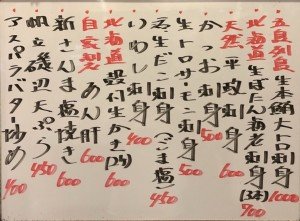 五島列島 生本鮪大トロ刺身 1000
北海道 生ぼたん海老刺身(3本) 900
天然 平政刺身 500
かつお刺身 500
生トロサーモン刺身 500
生だこ刺身(ごま塩) 450
いわし刺身 400
北海道 殻付生かき(2ヶ) 600
自家製 あん肝 600
新さんま塩焼き 600
帆立磯辺天ぷら 450
アスパラバター炒め 400